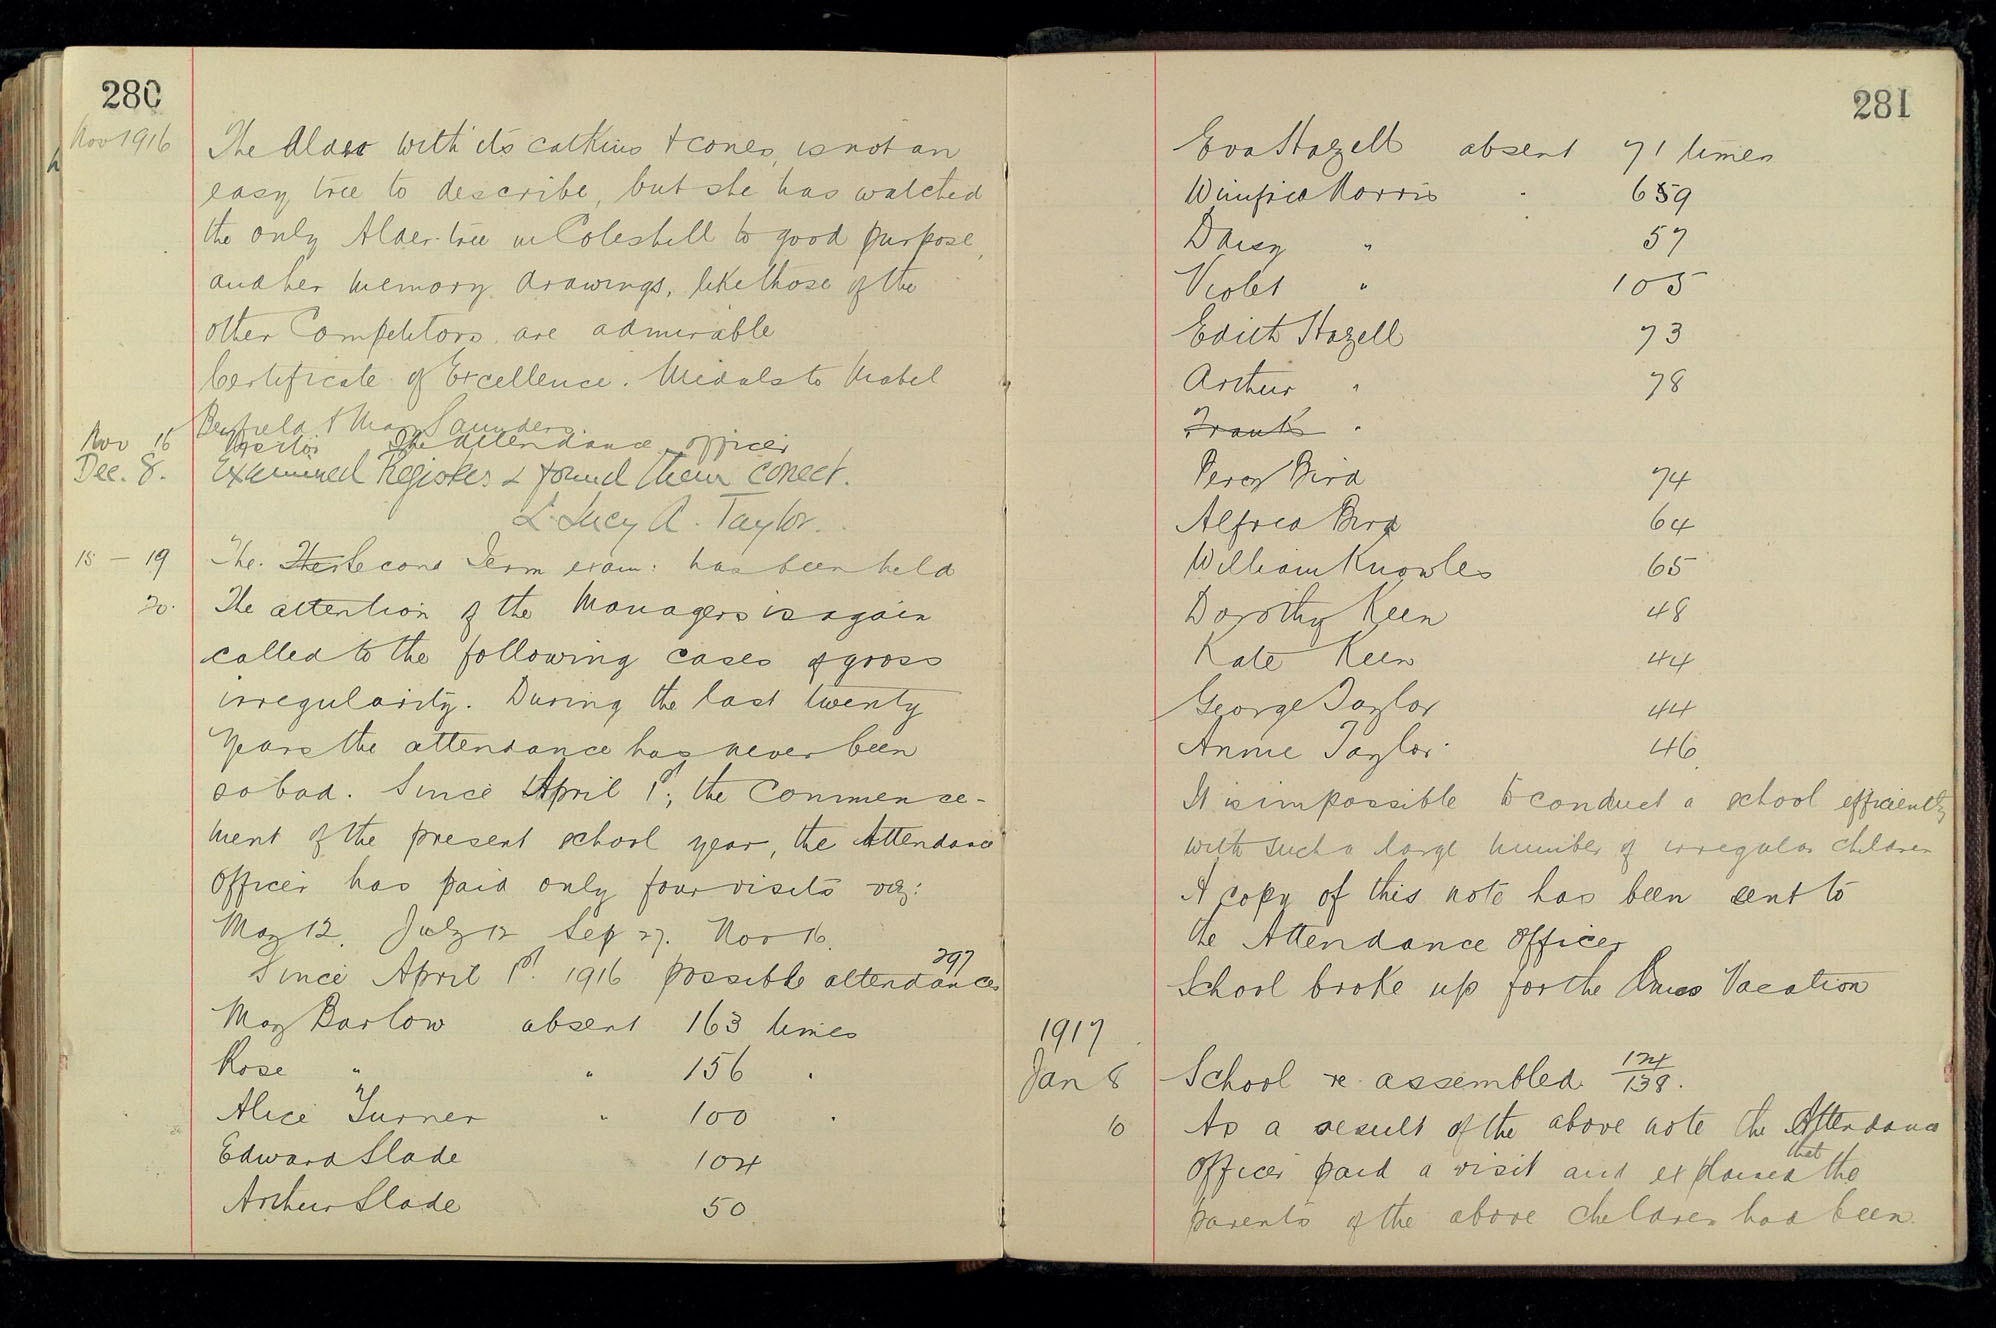 280
Nov 1916
The Alder with its catkins & cones, is not an
easy tree to describe, but she has watched
the only Alder-tree in Coleshill to good purpose,
and her memory drawings, like those of the
other Competitors are admirable
Certificate of Excellence. Medals to Mabel
Benfield & May Saunders
Nov 16 Visitor The attendance officer
Dec. 8. Examined Registers & found them correct.
L. Lucy A. Taylor.
15 - 19 The Second Term exam: has been held
20. The attention of the Managers is again
called to the following cases of gross
irregularity. During the last twenty
years the attendance has never been
so bad. Since April 1st, the Commence-
ment of the present school year, the Attendance
Officer has paid only four visits viz:
May 12. July 12 Sep 27. Nov 16.
Since April 1st 1916 possible attendances 297
May Barlow absent 163 times
Rose " " 156 "
Alice Turner " 100 "
Edward Slade 104
Arthur Slade 50
281
Eva Hazell absent 71 times
Winifred Morris " 659
Daisy " 57
Violet " 105
Edith Hazell 73
Arthur " 78
Frank "
Percy Bird 74
Alfred Bird 64
William Knowles 65
Dorothy Keen 48
Kate Keen 44
George Taylor 44
Annie Taylor 46
It is impossible to conduct a school efficiently
with such a large number of irregular children
A copy of this note has been sent to
the Attendance Officer
School broke up for the Xmas Vacation
1917
Jan 8 School re-assembled 124/138.
10 As a result of the above note the Attendance
Officer paid a visit and explained that the
parents of the above children had been